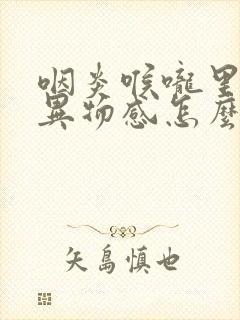 咽炎喉嚨里
異物感怎麼
矢島慎也